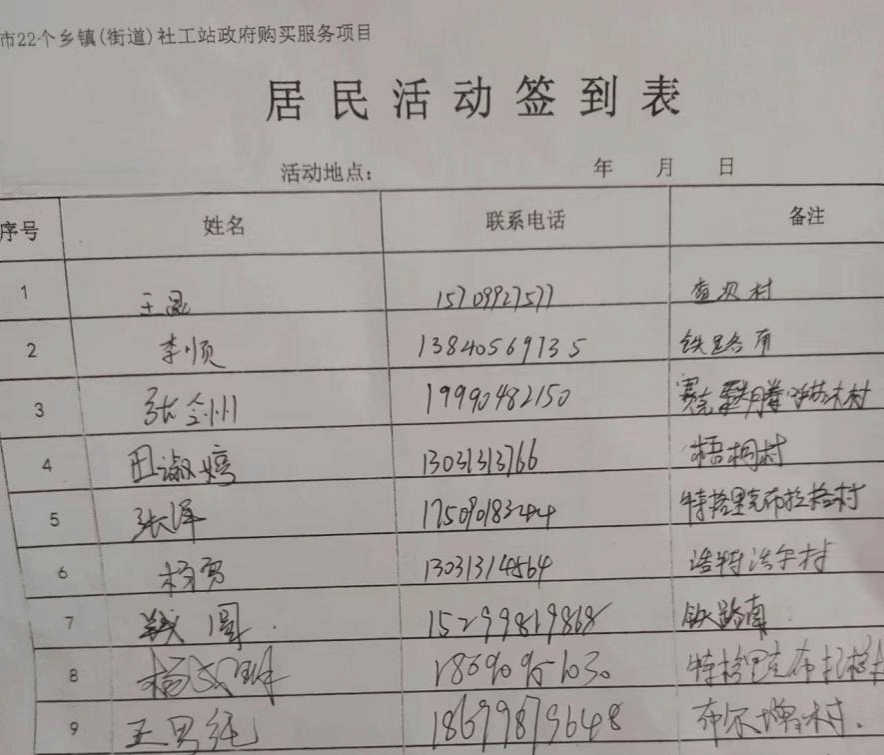 市22个乡镇(街道)社工站政府购买服务项目
居民活动签到表
活动地点： 年 月 日
序号 姓名 联系电话 备注
1 王 15709927577 查汉村
2 李顺 13840569735 铁路南
3 张剑川 19990482150 赛克 腾 木村
4 田淑婷 13031313766 梧桐村
5 张泽 17509018344 特格里克布拉格村
6 杨勇 13031314564 浩特浩尔村
7 钱圆 15299819868 铁路南
8 杨 特格里克布拉格村
9 王男纯 18699879648 布尔 村